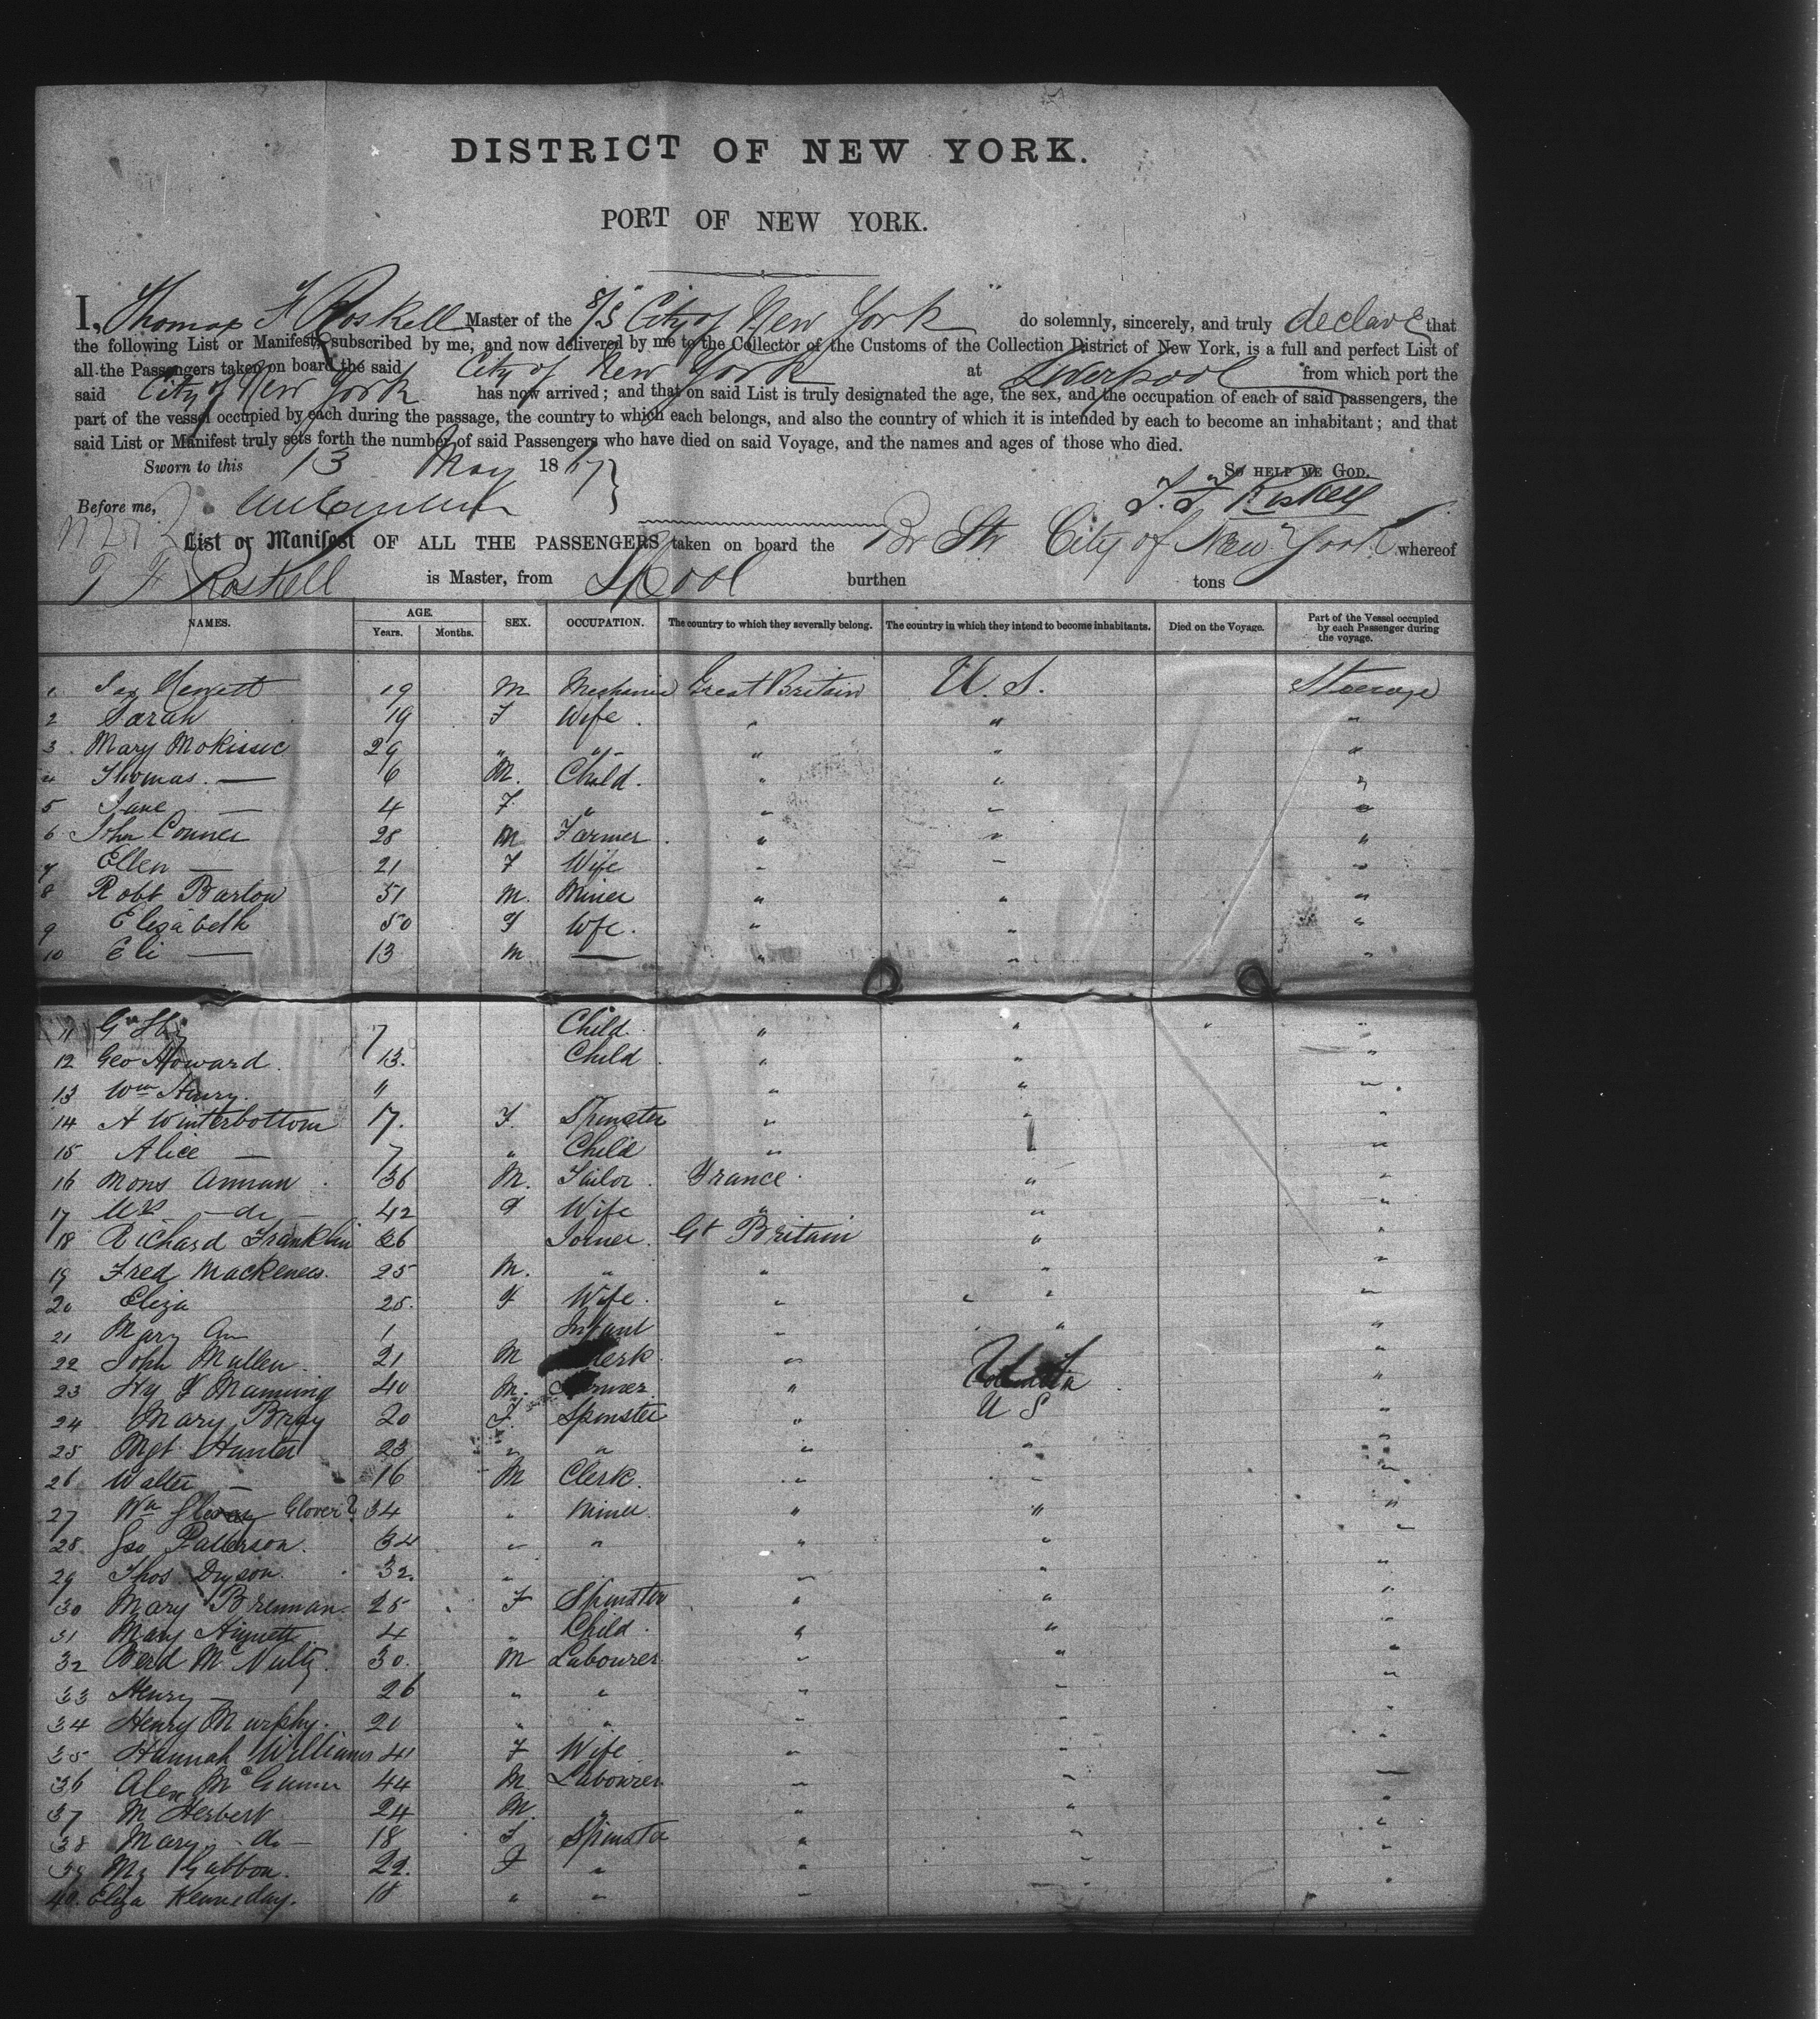 DISTRICT OF NEW YORK.
PORT OF NEW YORK.
I, Thomas F Roskell Master of the S/S "City of New York" do solemnly, sincerely, and truly declare that
the following List or Manifest, subscribed by me, and now delivered by me to the Collector of the Customs of the Collection District of New York, is a full and perfect List of
all the Passengers taken on board the said City of New York at Liverpool from which port the
said City of New York has now arrived; and that on said List is truly designated the age, the sex, and the occupation of each of said passengers, the
part of the vessel occupied by each during the passage, the country to which each belongs, and also the country of which it is intended by each to become an inhabitant; and that
said List or Manifest truly sets forth the number of said Passengers who have died on said Voyage, and the names and ages of those who died.
Sworn to this 13 May 1867 So help me God.
Before me, T. F Roskell
List or Manifest OF ALL THE PASSENGERS taken on board the Br Str City of New York whereof
T F Roskell is Master, from LPool burthen tons
NAMES. AGE. Years. Months. SEX. OCCUPATION. The country to which they severally belong. The country in which they intend to become inhabitants. Died on the Voyage. Part of the Vessel occupied by each Passenger during the voyage.
1 Jas Hewett 19 M Mechanic Great Britain U. S. Steerage
2 Sarah 19 F Wife " " "
3 Mary Mokissic 29 " " " " "
4 Thomas — 6 M. Child " " "
5 Jane — 4 F " " " "
6 John Conner 28 M Farmer " " "
7 Ellen — 21 F Wife " " "
8 Robt Barlow 51 M. Miner " " "
9 Elisabeth 50 F Wfe. " " "
10 Eli — 13 M — " " "
11 7 Child " " " "
12 Geo Howard 13. Child " " "
13 Wm Henry " " " "
14 A Winterbottom 17. F. Spinster " " "
15 Alice — 7 " Child " " "
16 Mons Annan 36 M. Tailor France " "
17 — do — 42 F Wife " " "
18 Richard Franklin 26 Joiner Gt Britain " "
19 Fred Mackeness 25 M. " " " "
20 Eliza 25. F Wife " " "
21 Mary An 1 Infant " " "
22 John Mullen 21 M Clerk " "
23 Hy F Manning 40 M. Farmer " "
24 Mary Bray 20 F. Spinster " U S "
25 Mgt Hunter 23 " " " " "
26 Walter — 16 M Clerk " " "
27 Wm Glover? 34 " Miner " " "
28 Jso Patterson 34 " " " " "
29 Thos Dyson 32. " " " "
30 Mary Brennan 25 F Spinster " " "
31 Mary Hignett 4 " Child " " "
32 Berd McNulty 30. M Labourer " " "
33 Henry — 26 " " " " "
34 Henry Murphy 20 " " " " "
35 Hannah Williams 41 F Wife " " "
36 Alex McGunn 44 M. Labourer " " "
37 M Herbert 24 M. " " " "
38 Mary — do — 18 F Spinster " " "
39 My Gabbon 22. F " " " "
40. Eliza Kenneday. 18 " " " " "